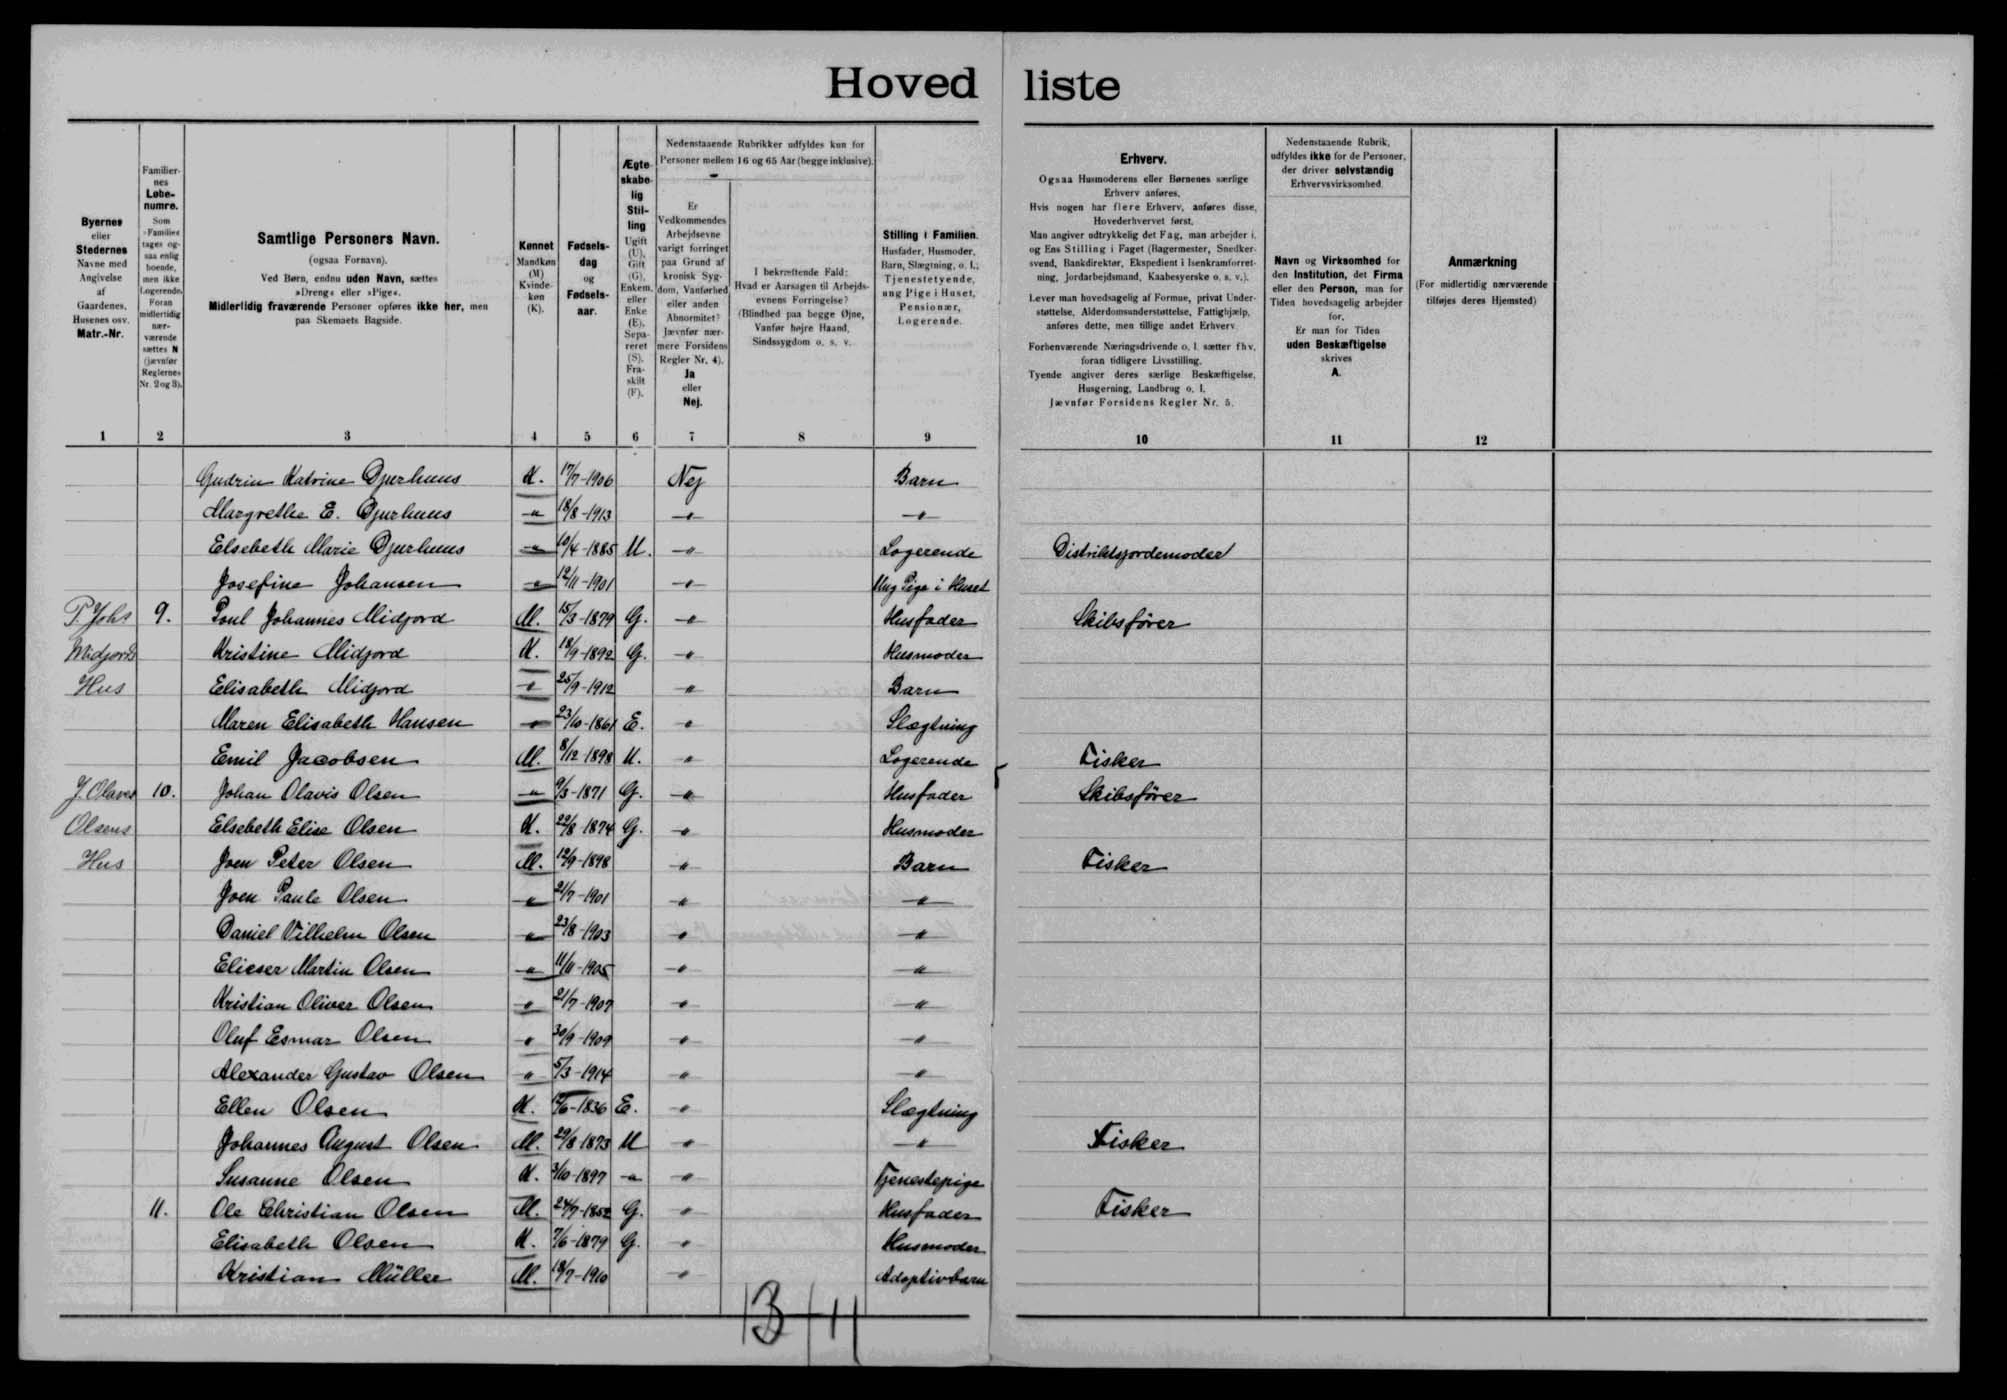 Hovedliste
Byernes
eller
Stedernes
Navne med
Angivelse
af
Gaardenes,
Husenes osv.
Matr.-Nr.
Familier-
nes
Løbe-
numre.
Som
»Familie«
tages og-
saa enlig
boende,
men ikke
Logerende.
Foran
midlertidig
nær-
værende
sættes N
(jævnfør
Reglernes
Nr. 2 og 3).
Samtlige Personers Navn.
(ogsaa Fornavn).
Ved Børn, endnu uden Navn, sættes
»Dreng« eller »Pige«.
Midlertidig fraværende Personer opføres ikke her, men
paa Skemaets Bagside.
Kønnet
Mandkøn
(M)
Kvinde-
køn
(K).
Fødsels-
dag
og
Fødsels-
aar.
Ægte-
skabe-
lig
Stil-
ling
Ugift
(U),
Gift
(G),
Enkem.
eller
Enke
(E),
Sepa-
reret
(S),
Fra-
skilt
(F).
Nedenstaaende Rubrikker udfyldes kun for
Personer mellem 16 og 65 Aar (begge inklusive).
Er
Vedkommendes
Arbejdsevne
varigt forringet
paa Grund af
kronisk Syg-
dom, Vanførhed
eller anden
Abnormitet?
Jævnfør nær-
mere Forsidens
Regler Nr. 4).
Ja
eller
Nej.
I bekræftende Fald:
Hvad er Aarsagen til Arbejds-
evnens Forringelse?
(Blindhed paa begge Øjne,
Vanfør højre Haand,
Sindssygdom o. s. v.
Stilling i Familien.
Husfader, Husmoder,
Barn, Slægtning, o. l.;
Tjenestetyende,
ung Pige i Huset,
Pensionær,
Logerende.
Erhverv.
Ogsaa Husmoderens eller Børnenes særlige
Erhverv anføres.
Hvis nogen har flere Erhverv, anføres disse,
Hovederhvervet først.
Man angiver udtrykkelig det Fag, man arbejder i,
og Ens Stilling i Faget (Bagermester, Snedker-
svend, Bankdirektør, Ekspedient i Isenkramforret-
ning, Jordarbejdsmand, Kaabesyerske o. s. v.).
Lever man hovedsagelig af Formue, privat Under-
støttelse, Alderdomsunderstøttelse, Fattighjælp,
anføres dette, men tillige andet Erhverv
Forhenværende Næringsdrivende o. l. sætter fhv.
foran tidligere Livsstilling.
Tyende angiver deres særlige Beskæftigelse,
Husgerning, Landbrug o. l.
Jævnfør Forsidens Regler Nr. 5.
Nedenstaaende Rubrik,
udfyldes ikke for de Personer,
der driver selvstændig
Erhvervsvirksomhed.
Navn og Virksomhed for
den Institution, det Firma
eller den Person, man for
Tiden hovedsagelig arbejder
for.
Er man for Tiden
uden Beskæftigelse
skrives
A.
Anmærkning
(For midlertidig nærværende
tilføjes deres Hjemsted)
1 2 3 4 5 6 7 8 9 10 11 12
Gudrin Katrine Djurhuus K. 17/7-1906 Nej Barn
Margrethe E. Djurhuus " 18/8-1913 " "
Elsebeth Marie Djurhuus " 10/4-1885 U. " Logerende Distriktsjordemoder
Josefine Johansen " 12/11-1901 " Ung Pige i Huset
P. Johs 9. Poul Johannes Midjord M. 15/3-1879 G. " Husfader Skibsfører
Midjords Kristine Midjord K. 18/9-1892 G. " Husmoder
Hus Elisabeth Midjord " 25/9-1912 " Barn
Maren Elisabeth Hansen " 23/10-1861 E. " Slægtning
Emil Jacobsen M. 8/12-1898 U. " Logerende Fisker
J. Olaves 10. Johan Olavis Olsen " 9/3-1871 G. " Husfader Skibsfører
Olsens Elsebeth Elise Olsen K. 22/8-1874 G. " Husmoder
Hus Joen Peter Olsen M. 12/9-1898 " Barn Fisker
Joen Paule Olsen " 21/7-1901 " "
Daniel Vilhelm Olsen " 23/8-1903 " "
Elieser Martin Olsen " 11/11-1905 " "
Kristian Oliver Olsen " 21/7-1907 " "
Oluf Esmar Olsen " 30/9-1909 " "
Alexander Gustav Olsen " 5/3-1914 " "
Ellen Olsen K. 12/6-1836 E. " Slægtning
Johannes August Olsen M. 29/8-1873 U " " Fisker
Susanne Olsen K. 3/10-1897 " " Tjenestepige
11. Ole Christian Olsen M. 24/7-1852 G. " Husfader Fisker
Elisabeth Olsen K. 7/6-1879 G. " Husmoder
Kristian Müller M. 18/7-1910 " Adoptivbarn
13 / 11